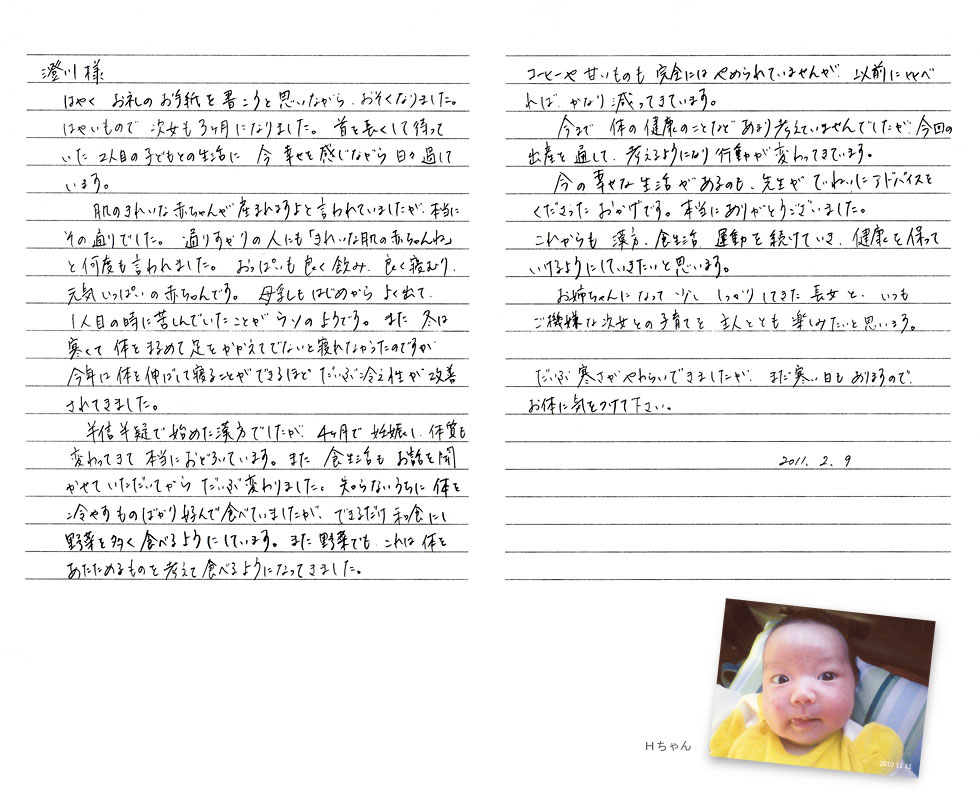 澄川様
はやく お礼のお手紙を書こうと思いながら、おそくなりました。
はやいもので 次女も3ヶ月になりました。首を長くして待って
いた 2人目の子どもとの生活に 今 幸せを感じながら 日々過して
います。
肌のきれいな赤ちゃんが産まれますよと言われていましたが、本当に
その通りでした。通りすがりの人にも「きれいな肌の赤ちゃんね」
と何度も言われました。おっぱいも良く飲み、良く寝むり、
元気いっぱいの赤ちゃんです。母乳もはじめから よく出て、
1人目の時に苦しんでいたことが ウソのようです。また 冬は
寒くて 体をまるめて足をかかえてでないと寝れなかったのですが
今年は体を伸ばして寝ることができるほど だいぶ冷え性が改善
されてきました。
半信半疑で始めた漢方でしたが、4ヶ月で妊娠し、体質も
変わってきて 本当におどろいています。また 食生活も お話を聞
かせていただいてから だいぶ変わりました。知らないうちに 体を
冷やすものばかり好んで食べていましたが、できるだけ 和食にし
野菜を多く食べるようにしています。また 野菜でも、これは 体を
あたためるものと考えて食べるようになってきました。
コーヒーや甘いものも 完全にはやめられていませんが、以前に比べ
れば、かなり減ってきています。
今まで 体の健康のことなど あまり考えていませんでしたが、今回の
出産を通して、考えるようになり 行動が変わってきています。
今の幸せな生活があるのも、先生が ていねいにアドバイスを
くださった おかげです。本当にありがとうございました。
これからも 漢方、食生活、運動を続けていき、健康を保って
いけるようにしていきたいと思います。
お姉ちゃんになって 少し しっかりしてきた 長女と、いつも
ご機嫌な次女との子育てを 主人ととも 楽しみたいと思います。
だいぶ 寒さがやわらいできましたが、まだ寒い日もあるので、
お体に気をつけて下さい。
2011. 2. 9
Hちゃん
2010 11 11